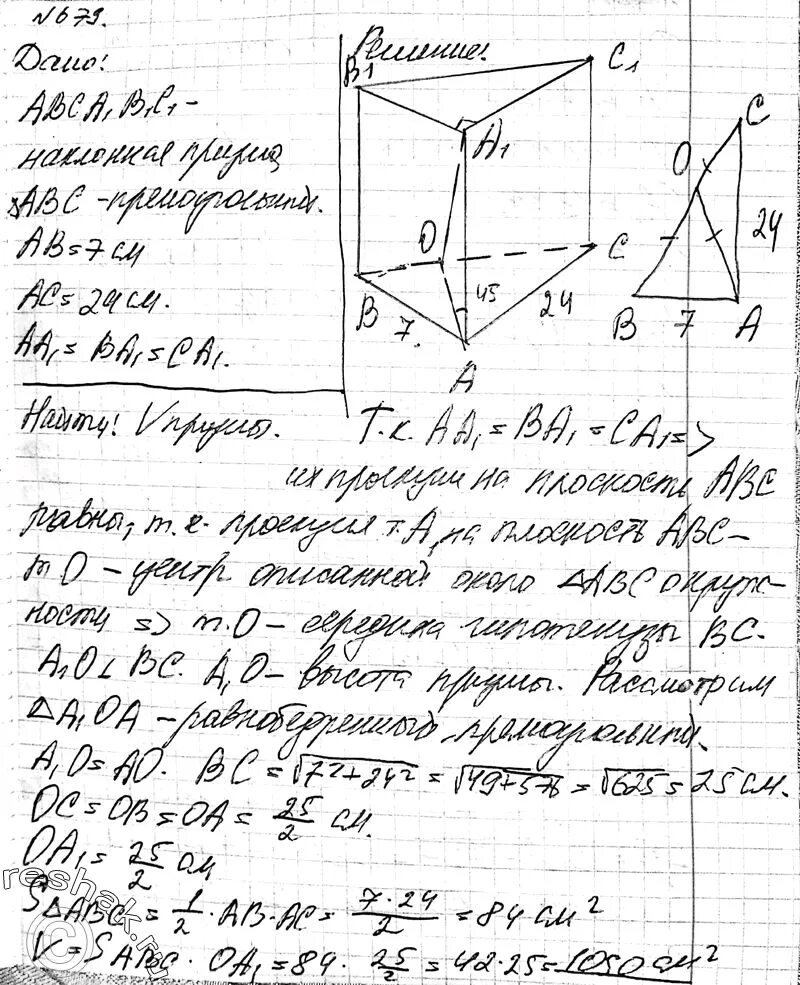 №679.
Дано:
ABCA₁B₁C₁ -
наклонная призма
△ABC - прямоугольный.
AB = 7 см
AC = 24 см.
AA₁ = BA₁ = CA₁.
Найти: V призмы.
Решение:
B₁
C₁
A₁
O
45
24
C
B
7.
A
C
O
24
B
7
A
Т.к. AA₁ = BA₁ = CA₁ =>
их проекции на плоскость ABC
равны, т.е. проекция т.A₁ на плоскость ABC -
т O - центр описанной около △ABC окруж-
ности => т.O - середина гипотенузы BC.
A₁O ⊥ BC. A₁O - высота призмы. Рассмотрим
△A₁OA - равнобедренный, прямоугольный.
A₁O = AO. BC = √7²+24² = √49+576 = √625 = 25 см.
OC = OB = OA = 25/2 см.
OA₁ = 25/2 см
S△ABC = 1/2 · AB · AC = 7·24/2 = 84 см²
V = S ABC · OA₁ = 84 · 25/2 = 42·25 = 1050 см²
reshak.ru
©